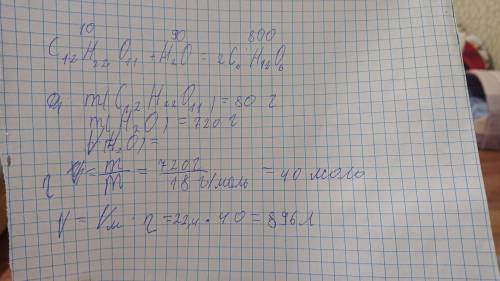 10 90 800
C₁₂H₂₂O₁₁ + H₂O = 2C₆H₁₂O₆
m(C₁₂H₂₂O₁₁) = 80 г
m(H₂O) = 720 г
V(H₂O) =
η = m/M = 720 г / 18 г/моль = 40 моль
V = Vм · η = 22,4 · 40 = 896 л